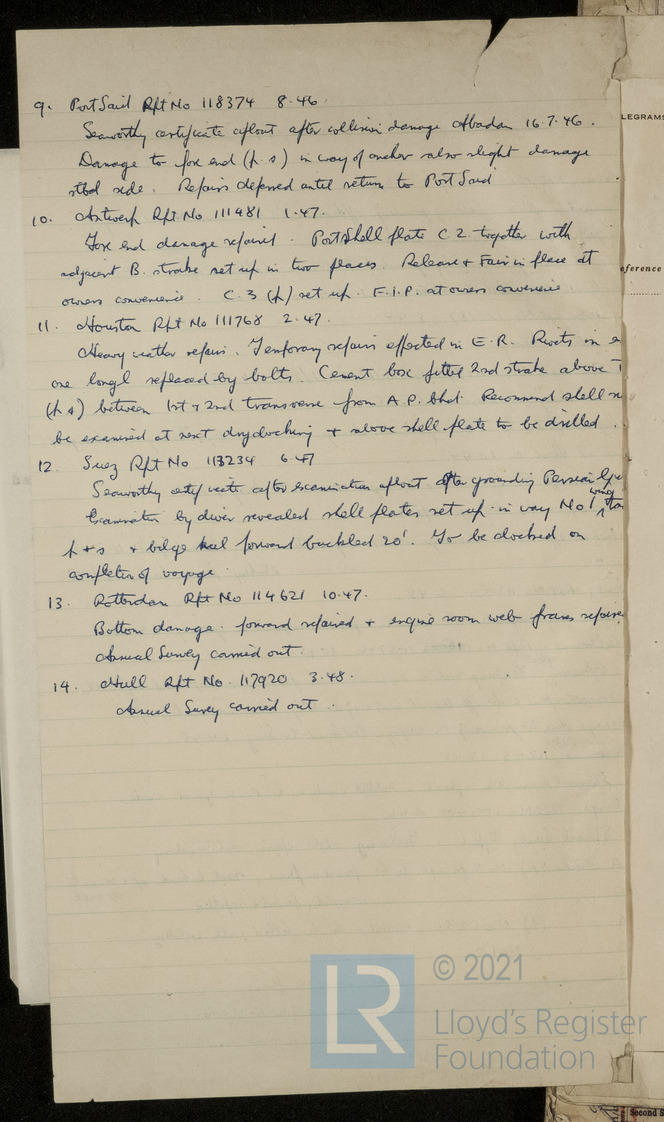 9. Port Said Rpt No 118374 8.46
Seaworthy certificate afloat after collision damage Abadan 16.7.46.
Damage to fore end (p.s) in way of anchor also slight damage
stbd side. Repairs deferred until return to Port Said
10. Antwerp Rpt No 111481 1.47.
Fore end damage repaired. Port Shell plate C.2. together with
adjacent B. strake set up in two places. Release & Fair in place at
owners convenience. C.3 (p) set up. F.I.P. at owners convenience
11. Houston Rpt No 111768 2.47.
Heavy weather repairs. Temporary repairs effected in E.R. Rivets in
one longl replaced by bolts. Cement box fitted 2nd strake above
(p.s) between 1st & 2nd transverse from A.P. bhd. Recommend shell
be examined at next drydocking & above shell plate to be drilled.
12. Suez Rpt No 113234 6.47
Seaworthy certificate after examination afloat after grounding Persian
Examination by diver revealed shell plates set up in way No 1 wing
p & s & bilge keel forward buckled 20'. To be docked on
completion of voyage.
13. Rotterdam Rpt No 114621 10.47.
Bottom damage forward repaired & engine room web frames
Annual Survey carried out.
14. Hull Rpt No. 117920 3.48.
Annual Survey carried out.
LEGRAMS
eference
© 2021
LR
Lloyd's Register
Foundation
Second S